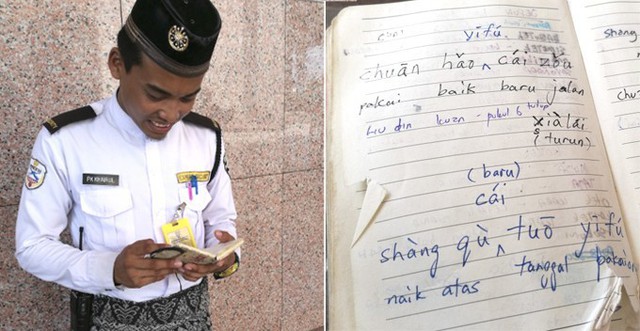 PK KHAIRUL
yīfú
chuān hǎo ^ cái zǒu
pakai baik baru jalan
liu din kuan - pukul 6 tutup
xiàlái
(turun)
(baru)
cái
shàng qù ^ tuō yīfú
naik atas tanggal pakaian
shàng
chu